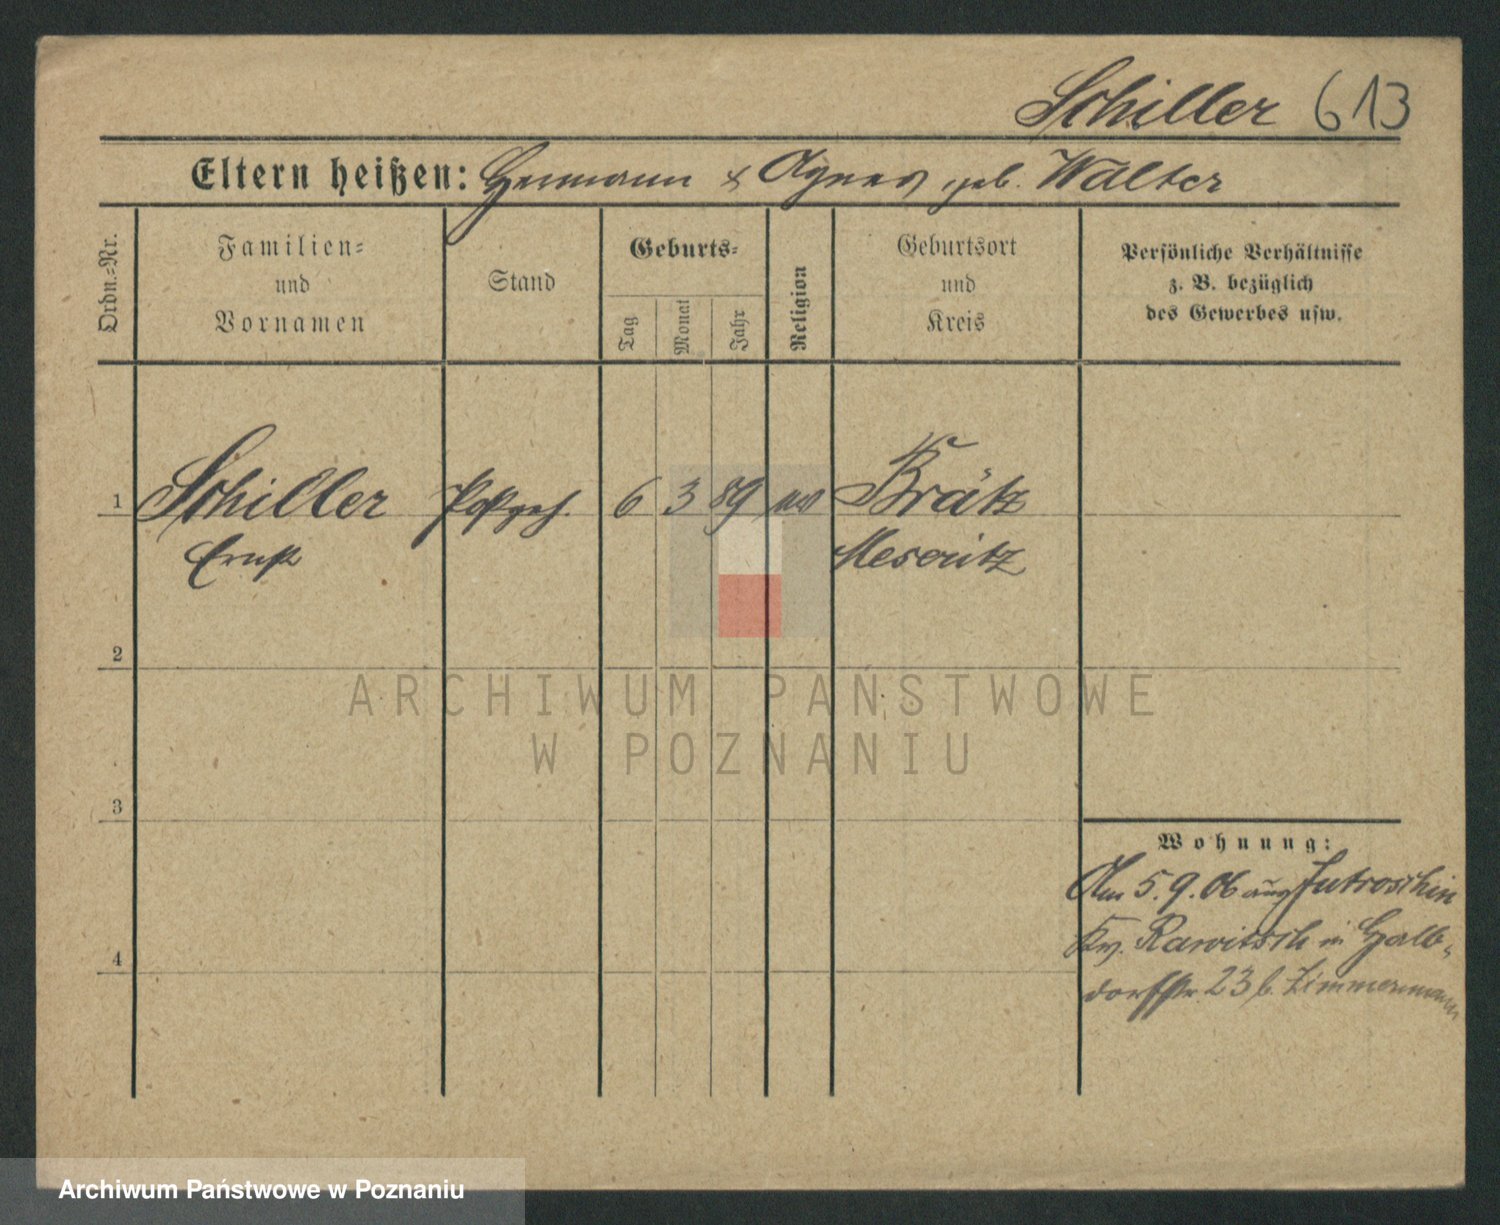 Schiller 613
Eltern heißen: Hermann & Agnes geb. Walter
Ordn.-Nr.
Familien-
und
Vornamen
Stand
Geburts-
Tag
Monat
Jahr
Religion
Geburtsort
und
Kreis
Persönliche Verhältnisse
z. B. bezüglich
des Gewerbes usw.
1 Schiller Postgeh. 6 3 89 Brätz
Ernst Meseritz
2
3
4
ARCHIWUM PAŃSTWOWE
W POZNANIU
Wohnung:
Am 5.9.06 aus Jutroschin
Kr. Rawitsch in Halb-
dorfstr. 23 b. Zimmermann
Archiwum Państwowe w Poznaniu